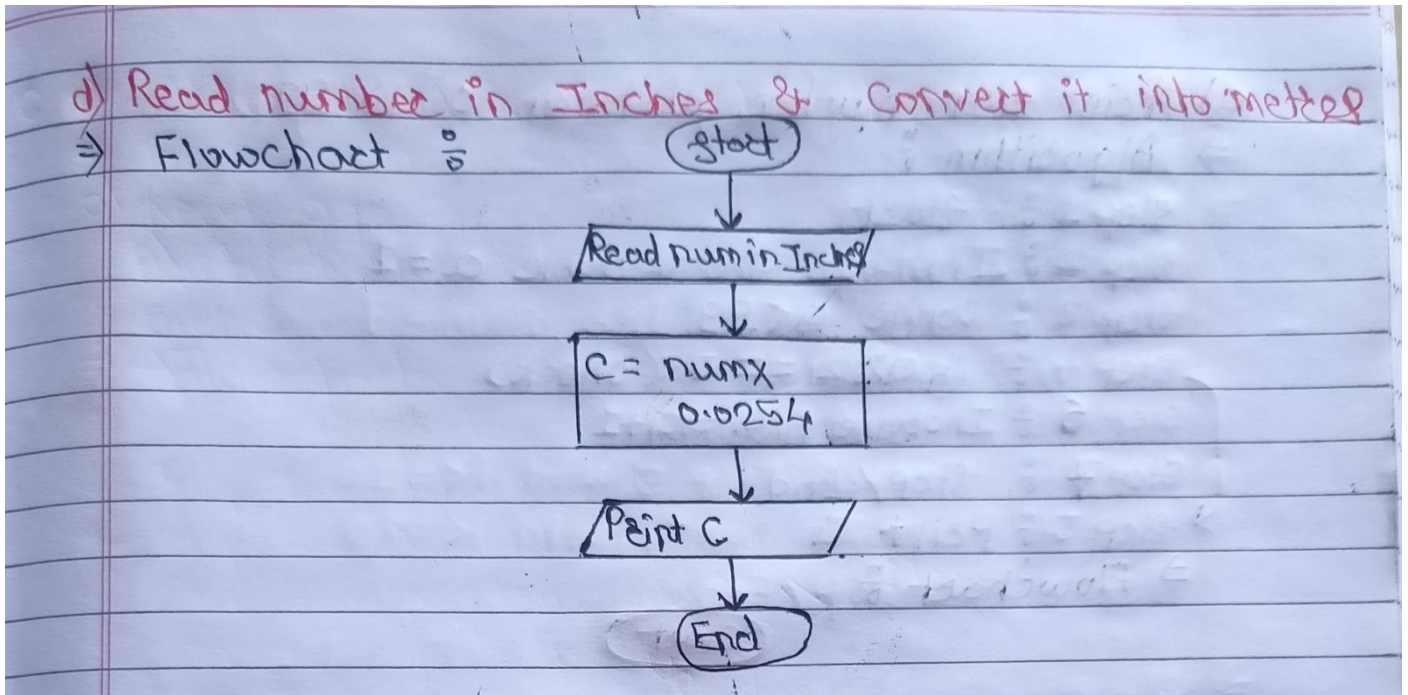 d) Read number in Inches & Convert it into metter
⇒ Flowchart : Start
Read num in Inches
C = numx
0.0254
Print C
End